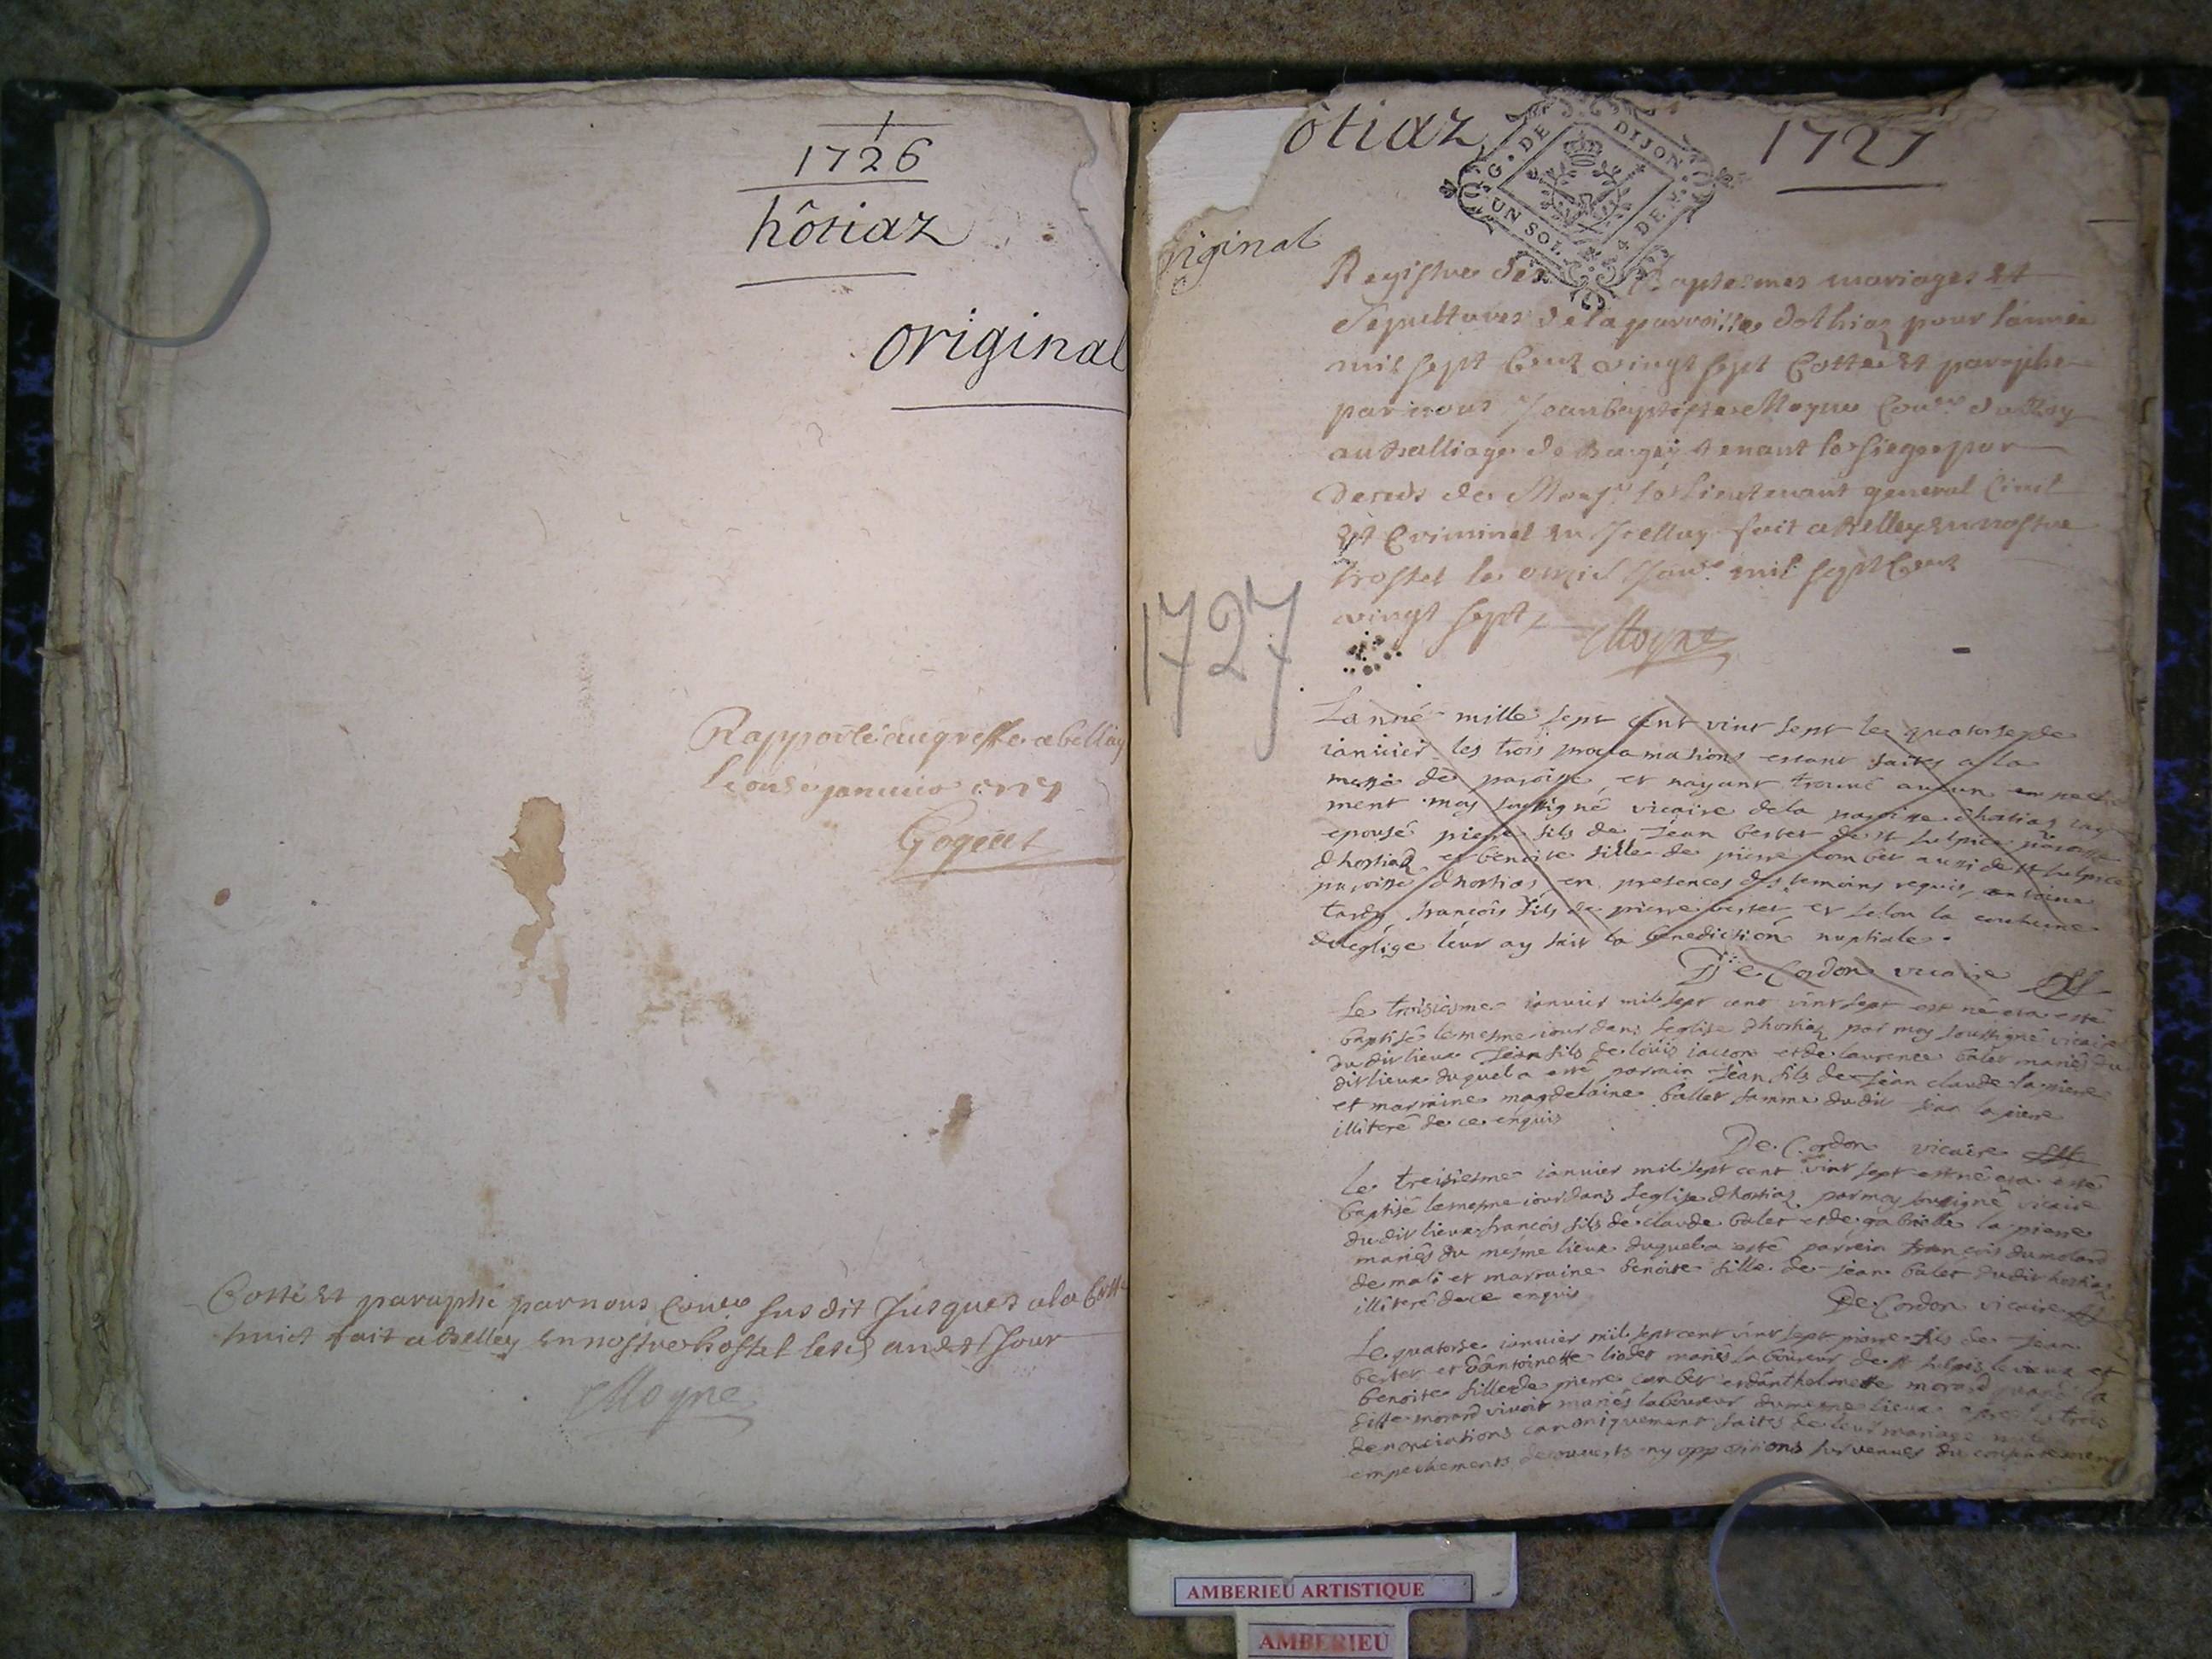 1
1726
hôtiaz
original
Rapporté au greffe a belley
le onze janvier 1727
Cotté et paraphé par nous Conr susdit Jusques a la Cotte
huict fait a Belley en nostre hostel lesd an et Jour
Moyne
ôtiaz
G. DE DIJON
UN SOL 4 DE
1727
riginal
Registre des Baptesmes mariages et
Sepultures de la parroisse dothiaz pour lannée
mil sept Cent vingt sept Cotté et paraphe
par nous Jean Baptiste Moyne Conr du Roy
au Balliage de Bugey tenant le siege par
deceds de Monsr le Lieutenant general Civil
et Criminel en Icelluy fait a Belley en nostre
hostel le onzie Janr mil sept Cent
vingt sept
Moyne
1727
Lanné mille sept cent vint sept le quatorse de
ianvier les trois proclamations estant faites a la
messe de paroisse et nayant trouvé aucun en peche
ment moy soussigné vicaire de la paroisse dhostiaz ay
epousé pierre fils de Jean berter de st sulpice paroisse
dhostiaz et benoite fille de pierre comber aussi de st sulpice
paroisse dhostias en presences des temoins requis antoine
tardy francois fils de pierre berter et selon la coutume
de leglise leur ay fait la benediction nuptiale.
De Cordon vicaire
Le troisiesme ianvier mil sept cent vint sept est né et a esté
baptisé le mesme iour dans leglise dhostiaz par moy soussigné vicaire
du dit lieux Jean fils de louis iacon et de laurence balet mariés du
dit lieux du quel a esté parrain Jean fils de Jean claude lapierre
et marraine magdelaine ballet famme du dit Jean lapierre
illiteré de ce enquis
De Cordon vicaire
Le treisiesme ianvier mil sept cent vint sept est né et a esté
baptisé le mesme iour dans leglise dhostiaz par moy soussigné vicaire
du dit lieux francois fils de claude balet et de gabrielle lapierre
mariés du mesme lieux duquel a esté parrein francois dumolard
de mali et marraine benoite fille de jean balet du dit hostiaz
illiteré de ce enquis
De Cordon vicaire
Le quatorse ianvier mil sept cent vint sept pierre fils de Jean
berter et dantoinette liodet mariés laboureur de st sulpis le vieux et
benoite fille de pierre comber et danthelmette morard la
ditte morard vivoit mariés laboureur du mesme lieux apres les trois
denonciations canoniquement faites de leur mariage
empechements decouverts ny oppositions survenues du consentement